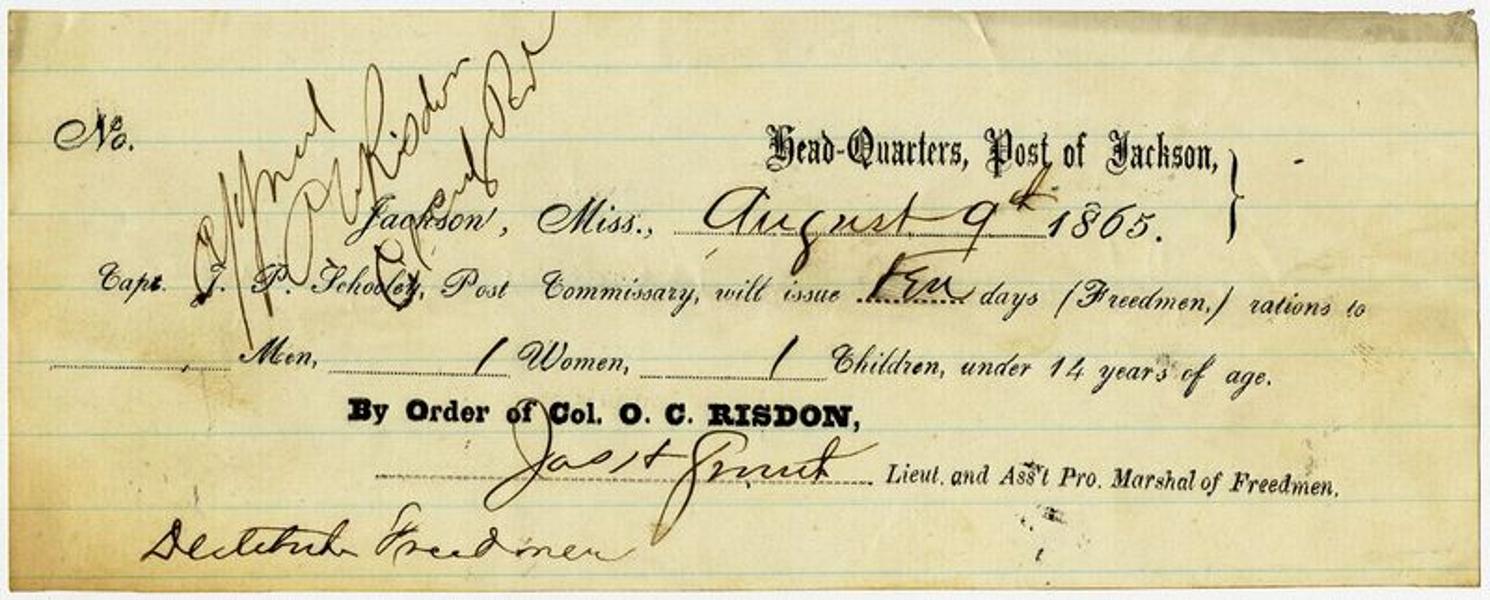 No.
Approved
O C Risdon
Head-Quarters, Post of Jackson,
Jackson, Miss., August 9th 1865.
Capt. J. P. Schooley, Post Commissary, will issue Ten days (Freedmen,) rations to
Men, 1 Women, 1 Children, under 14 years of age.
By Order of Col. O. C. RISDON,
Jas H Lieut. and Ass't Pro. Marshal of Freedmen.
Destitute Freedmen